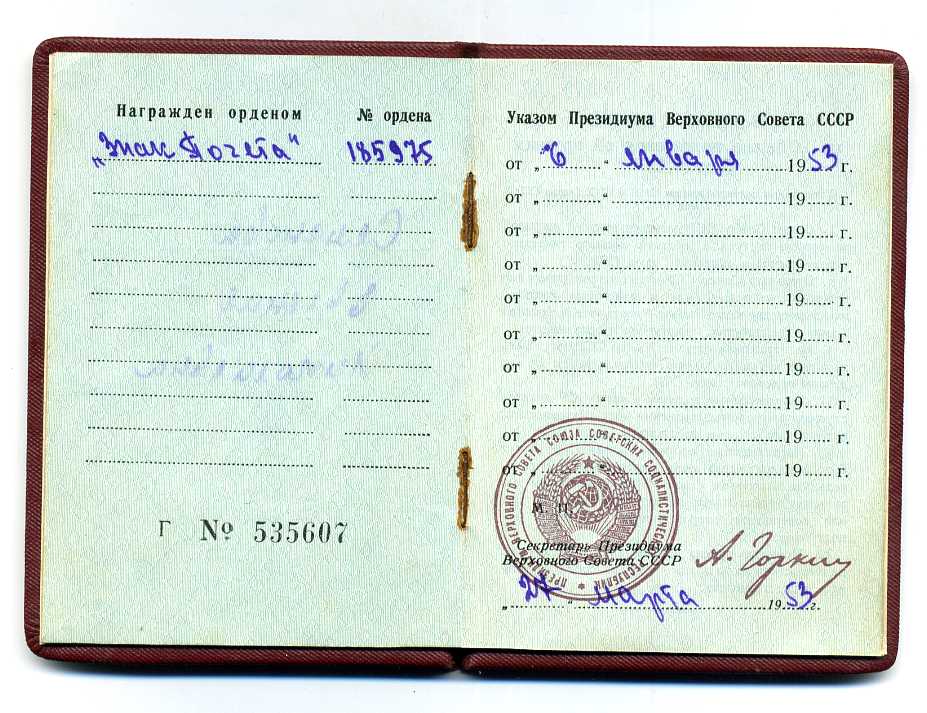 Награжден орденом № ордена
„Знак Почета“ 185975
Г № 535607
Указом Президиума Верховного Совета СССР
от „6“ января 1953 г.
от „ “ 19 г.
от „ “ 19 г.
от „ “ 19 г.
от „ “ 19 г.
от „ “ 19 г.
от „ “ 19 г.
от „ “ 19 г.
от „ “ 19 г.
от „ “ 19 г.
ПРЕЗИДИУМ ВЕРХОВНОГО СОВЕТА СОЮЗА СОВЕТСКИХ СОЦИАЛИСТИЧЕСКИХ РЕСПУБЛИК
М. П.
Секретарь Президиума
Верховного Совета СССР А. Горкин
„27“ марта 1953 г.